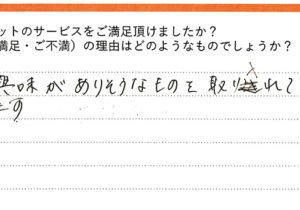 ットのサービスをご満足頂けましたか？
満足・ご不満）の理由はどのようなものでしょうか？
興味がありそうなものを取りれて
ます